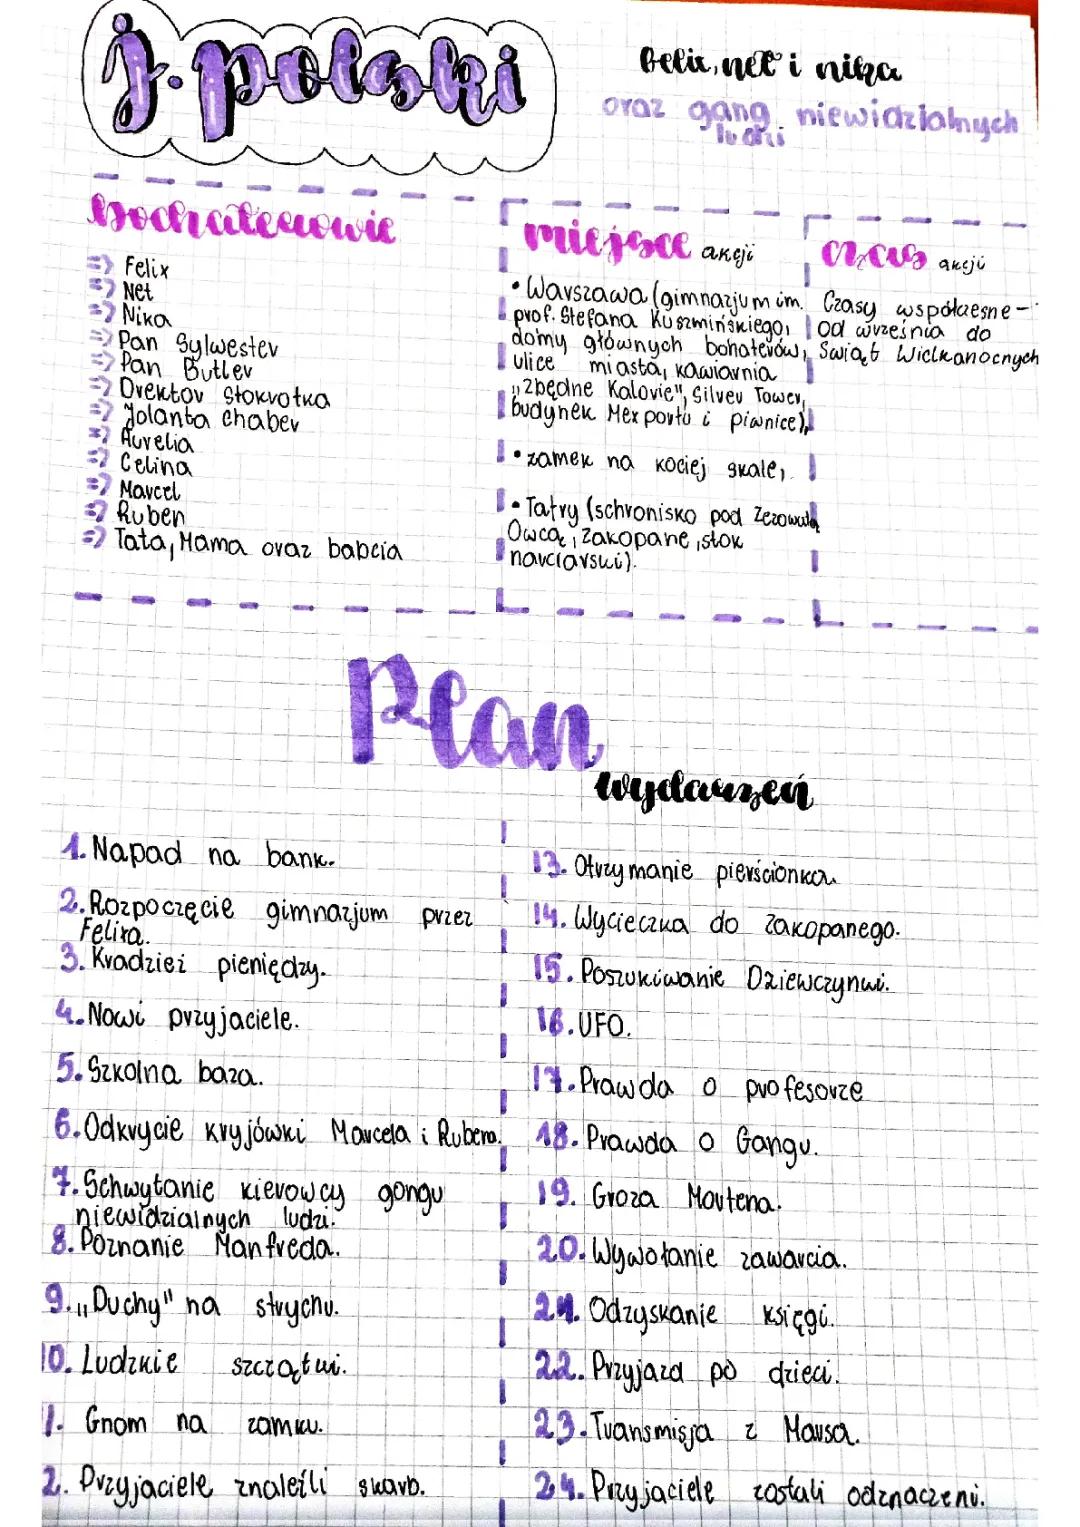 j. polski
Felix, net i nika
oraz gang niewidzialnych
ludzi
Bochaterowie
=> Felix
=> Net
=> Nika
=> Pan Sylwester
=> Pan Butler
=> Drektor Stokrotka
=> Jolanta Chaber
=> Aurelia
=> Celina
=> Marcel
=> Ruben
=> Tata, Mama oraz babcia
miejsce akcji
• Warszawa (gimnazjum im.
prof. Stefana Kuszmińskiego,
domy głównych bohaterów,
ulice miasta, kawiarnia
„zbędne Kalorie", Silver Tower,
budynek Mexportu i piwnice),
• zamek na kociej skale,
• Tatry (schronisko pod Zezowatą
Owcą, Zakopane, stok
narciarski).
czas akcji
Czasy współczesne -
od września do
Świąt Wielkanocnych
Plan
wydarzeń
1. Napad na bank.
2. Rozpoczęcie gimnazjum przez
Felixa.
3. Kradzież pieniędzy.
4. Nowi przyjaciele.
5. Szkolna baza.
6. Odkrycie kryjówki Marcela i Rubena.
7. Schwytanie kierowcy gongu
niewidzialnych ludzi.
8. Poznanie Manfreda.
9. „Duchy" na strychu.
10. Ludzkie szczątki.
1. Gnom na zamku.
2. Przyjaciele znaleźli skarb.
13. Otrzymanie pierścionka.
14. Wycieczka do Zakopanego.
15. Poszukiwanie Dziewczynki.
16. UFO.
17. Prawda o profesorze
18. Prawda o Gangu.
19. Groza Mortena.
20. Wywołanie zawarcia.
21. Odzyskanie księgi.
22. Przyjazd po dzieci.
23. Transmisja z Marsa.
24. Przyjaciele zostali odznaczeni.